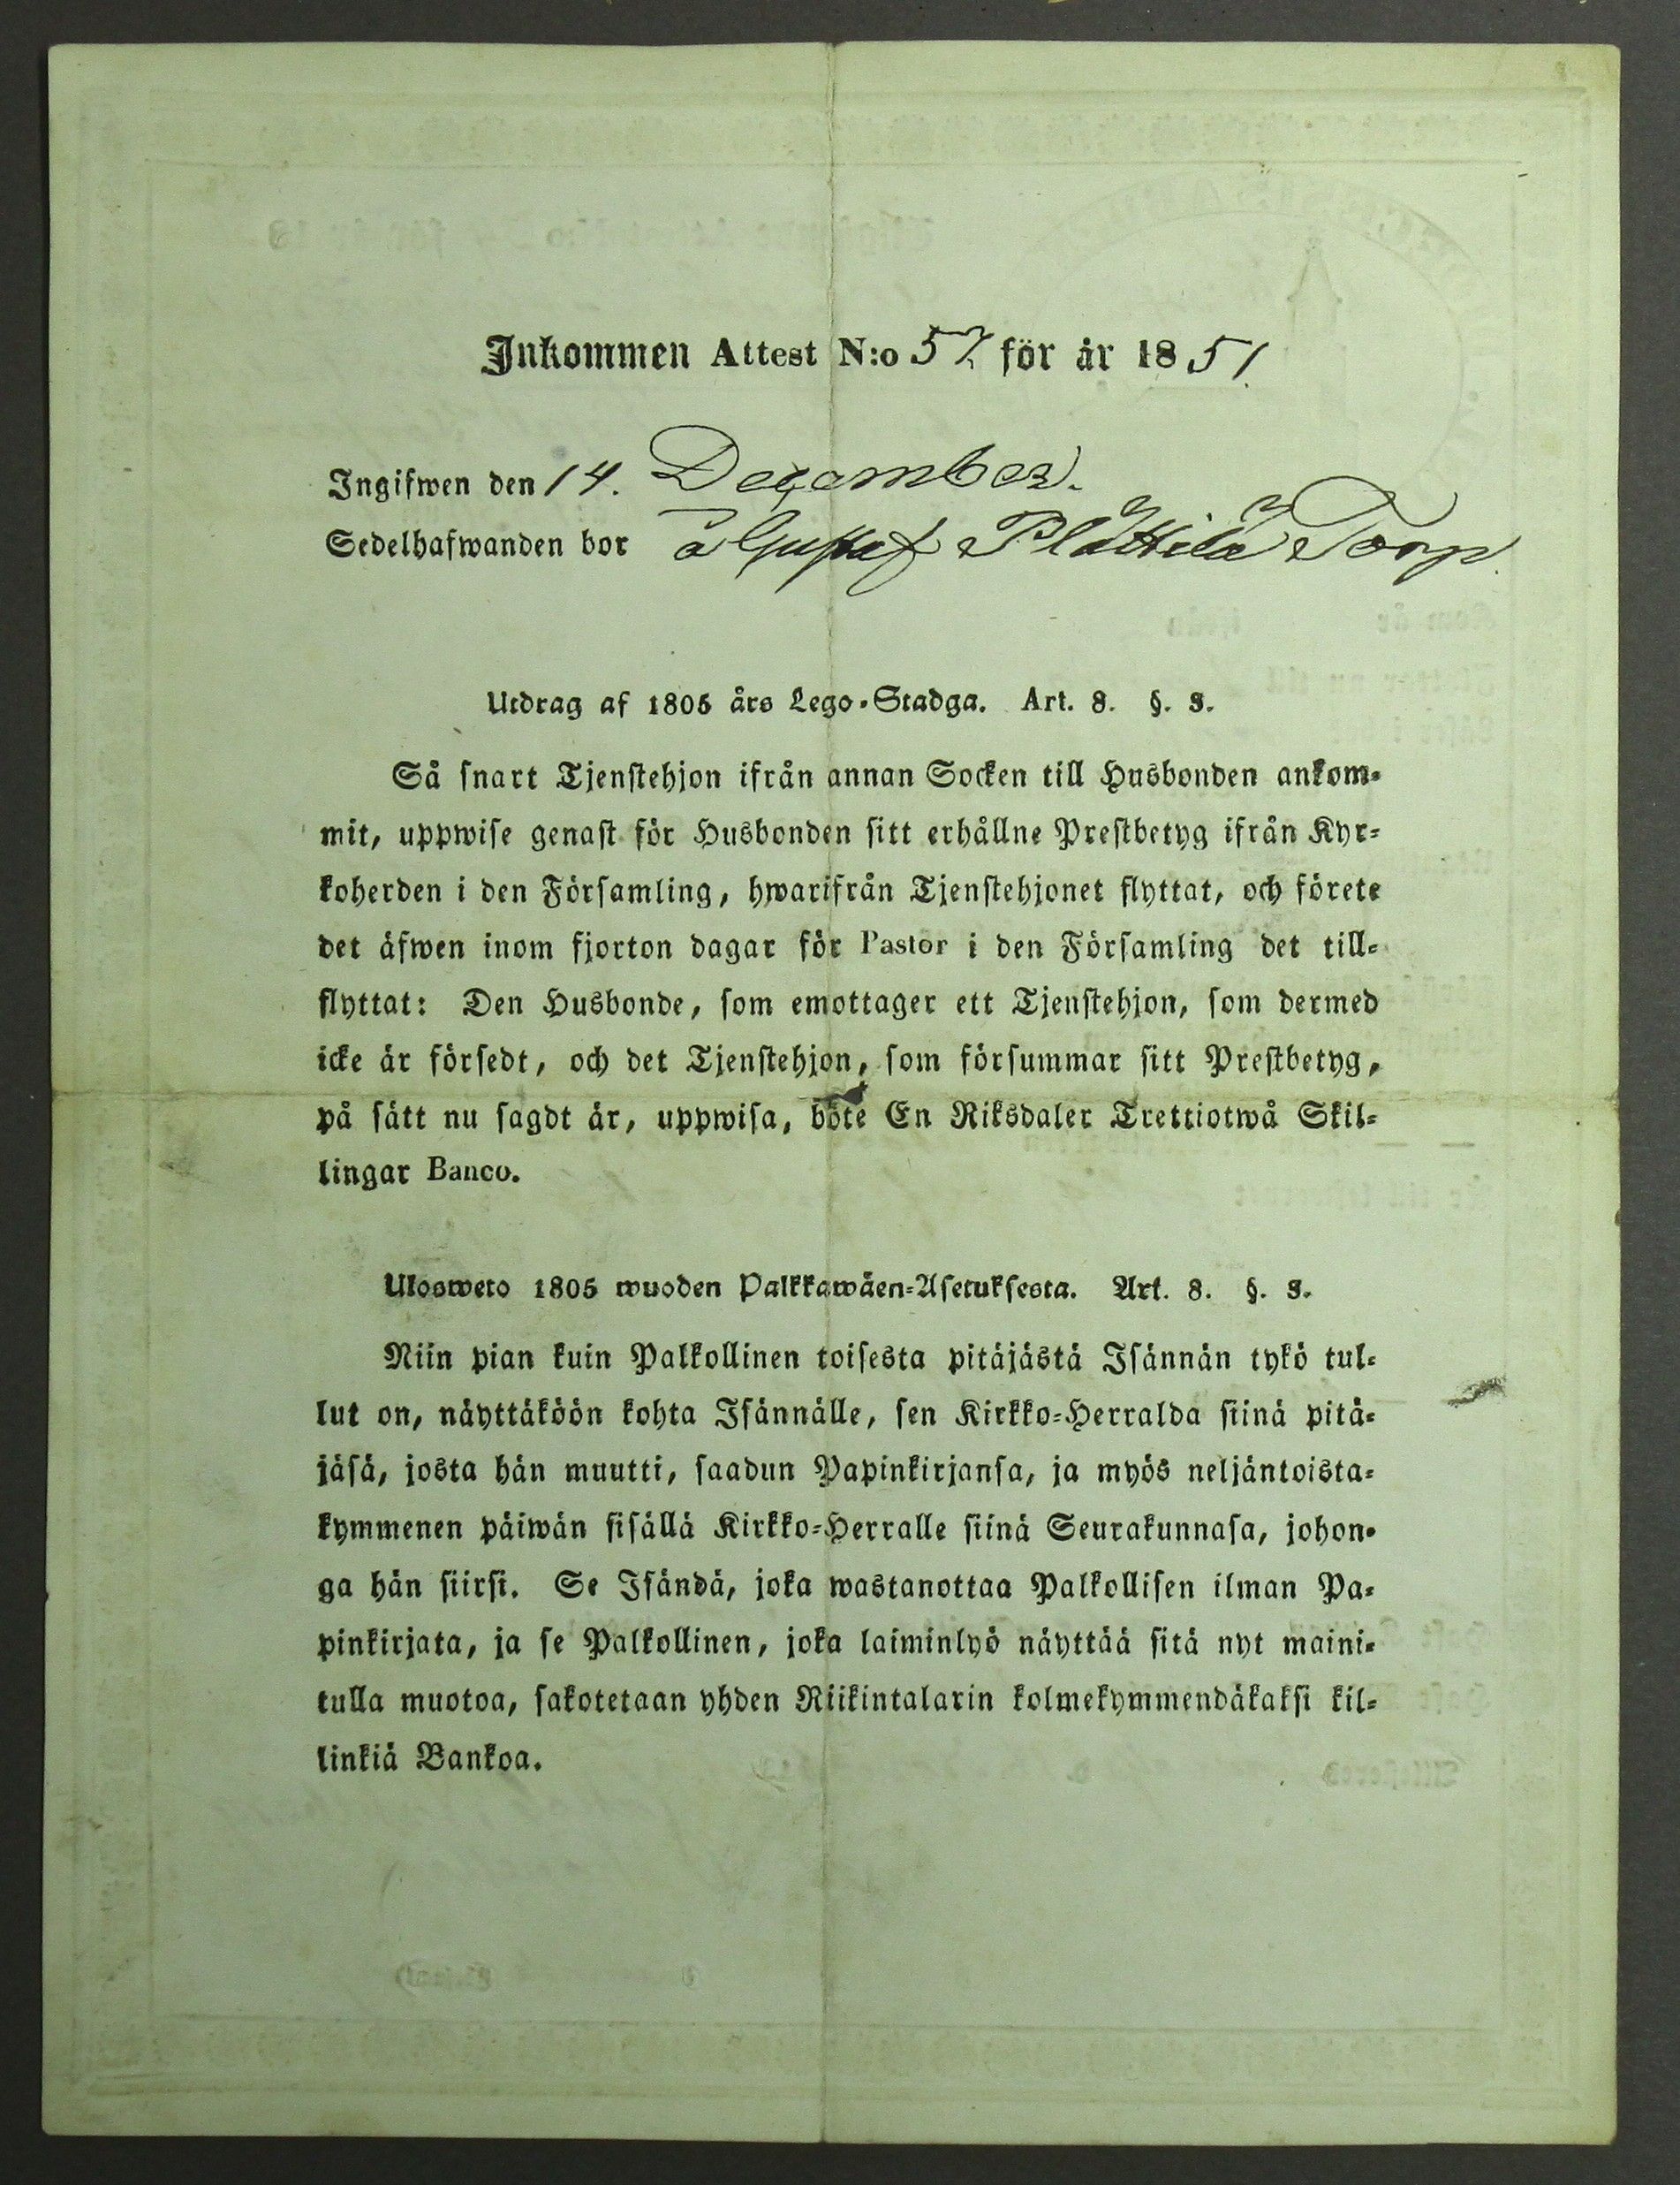 Inkommen Attest N:o 57 för år 1851
Ingifwen den 14. December.
Sedelhafwanden bor å Gustaf Plättilä Torp
Utdrag af 1805 års Lego-Stadga. Art. 8. §. 3.
Så snart Tjenstehjon ifrån annan Socken till Husbonden ankom-
mit, uppwise genast för Husbonden sitt erhållne Prestbetyg ifrån Kyr-
koherden i den Församling, hwarifrån Tjenstehjonet flyttat, och förete
det äfwen inom fjorton dagar för Pastor i den Församling det till-
flyttat: Den Husbonde, som emottager ett Tjenstehjon, som dermed
icke är försedt, och det Tjenstehjon, som försummar sitt Prestbetyg,
på sätt nu sagdt är, uppwisa, böte En Riksdaler Trettiotwå Skil-
lingar Banco.
Ulosweto 1805 wuoden Palkkawäen-Asetuksesta. Art. 8. §. 3.
Niin pian kuin Palkollinen toisesta pitäjästä Isännän tykö tul-
lut on, näyttäköön kohta Isännälle, sen Kirkko-Herralda siinä pitä-
jäsä, josta hän muutti, saadun Papinkirjansa, ja myös neljäntoista-
kymmenen päiwän sisällä Kirkko-Herralle siinä Seurakunnasa, johon-
ga hän siirsi. Se Isändä, joka wastanottaa Palkollisen ilman Pa-
pinkirjata, ja se Palkollinen, joka laiminlyö näyttää sitä nyt maini-
tulla muotoa, sakotetaan yhden Riikintalarin kolmekymmendäkaksi kil-
linkiä Bankoa.